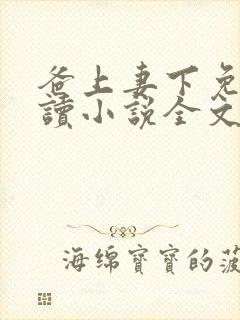 爸上妻下免
讀小説全文
海绵寶寶的菠